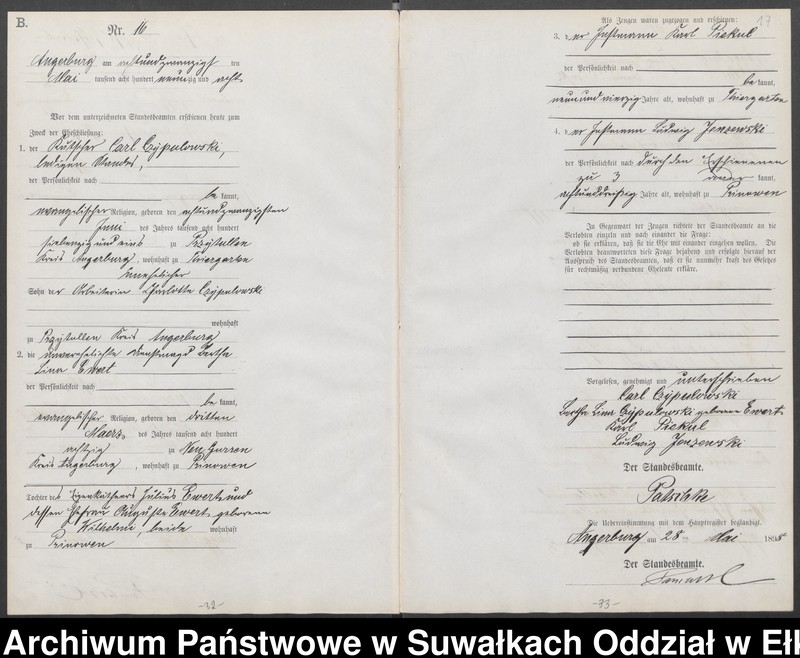 B.
Nr. 16
Angerburg am achtundzwanzigsten ten
Mai tausend acht hundert neunzig und acht
Vor dem unterzeichneten Standesbeamten erschienen heute zum
Zweck der Eheschließung:
1. der Kutscher Carl Czypulowski,
ledigen Standes,
der Persönlichkeit nach
be kannt,
evangelischer Religion, geboren den achtundzwanzigsten
Juni des Jahres tausend acht hundert
siebenzig und eins zu Przytullen
Kreis Angerburg, wohnhaft zu Thiergarten
unehelicher
Sohn der Arbeiterin Charlotte Czypulowski
wohnhaft
zu Przytullen Kreis Angerburg
2. die unverehelichte Dienstmagd Bertha
Lina Ewert
der Persönlichkeit nach
be kannt,
evangelischer Religion, geboren den dritten
Maerz des Jahres tausend acht hundert
achtzig zu Neu Gurren
Kreis Angerburg, wohnhaft zu Prinowen
Tochter des Eigenkäthners Julius Ewert und
dessen Ehefrau Auguste Ewert geborene
Wilhelmi, beide wohnhaft
zu Prinowen
-32-
17
Als Zeugen waren zugezogen und erschienen:
3. der Instmann Karl Piekul
der Persönlichkeit nach
be kannt,
neunundvierzig Jahre alt, wohnhaft zu Thiergarten
4. der Instmann Ludwig Jenzewski
der Persönlichkeit nach durch den Erschienenen
zu 3 kannt,
achtunddreißig Jahre alt, wohnhaft zu Prinowen
In Gegenwart der Zeugen richtete der Standesbeamte an die
Verlobten einzeln und nach einander die Frage:
ob sie erklären, daß sie die Ehe mit einander eingehen wollen. Die
Verlobten beantworteten diese Frage bejahend und erfolgte hierauf der
Ausspruch des Standesbeamten, daß er sie nunmehr kraft des Gesetzes
für rechtmäßig verbundene Eheleute erkläre.
Vorgelesen, genehmigt und unterschrieben
Carl Czypulowski
Bertha Lina Czypulowski geborene Ewert
Karl Piekul
Ludwig Jenzewski
Der Standesbeamte.
Die Uebereinstimmung mit dem Hauptregister beglaubigt.
Angerburg am 28 ten Mai 1898
Der Standesbeamte.
-33-
Archiwum Państwowe w Suwałkach Oddział w Ełk